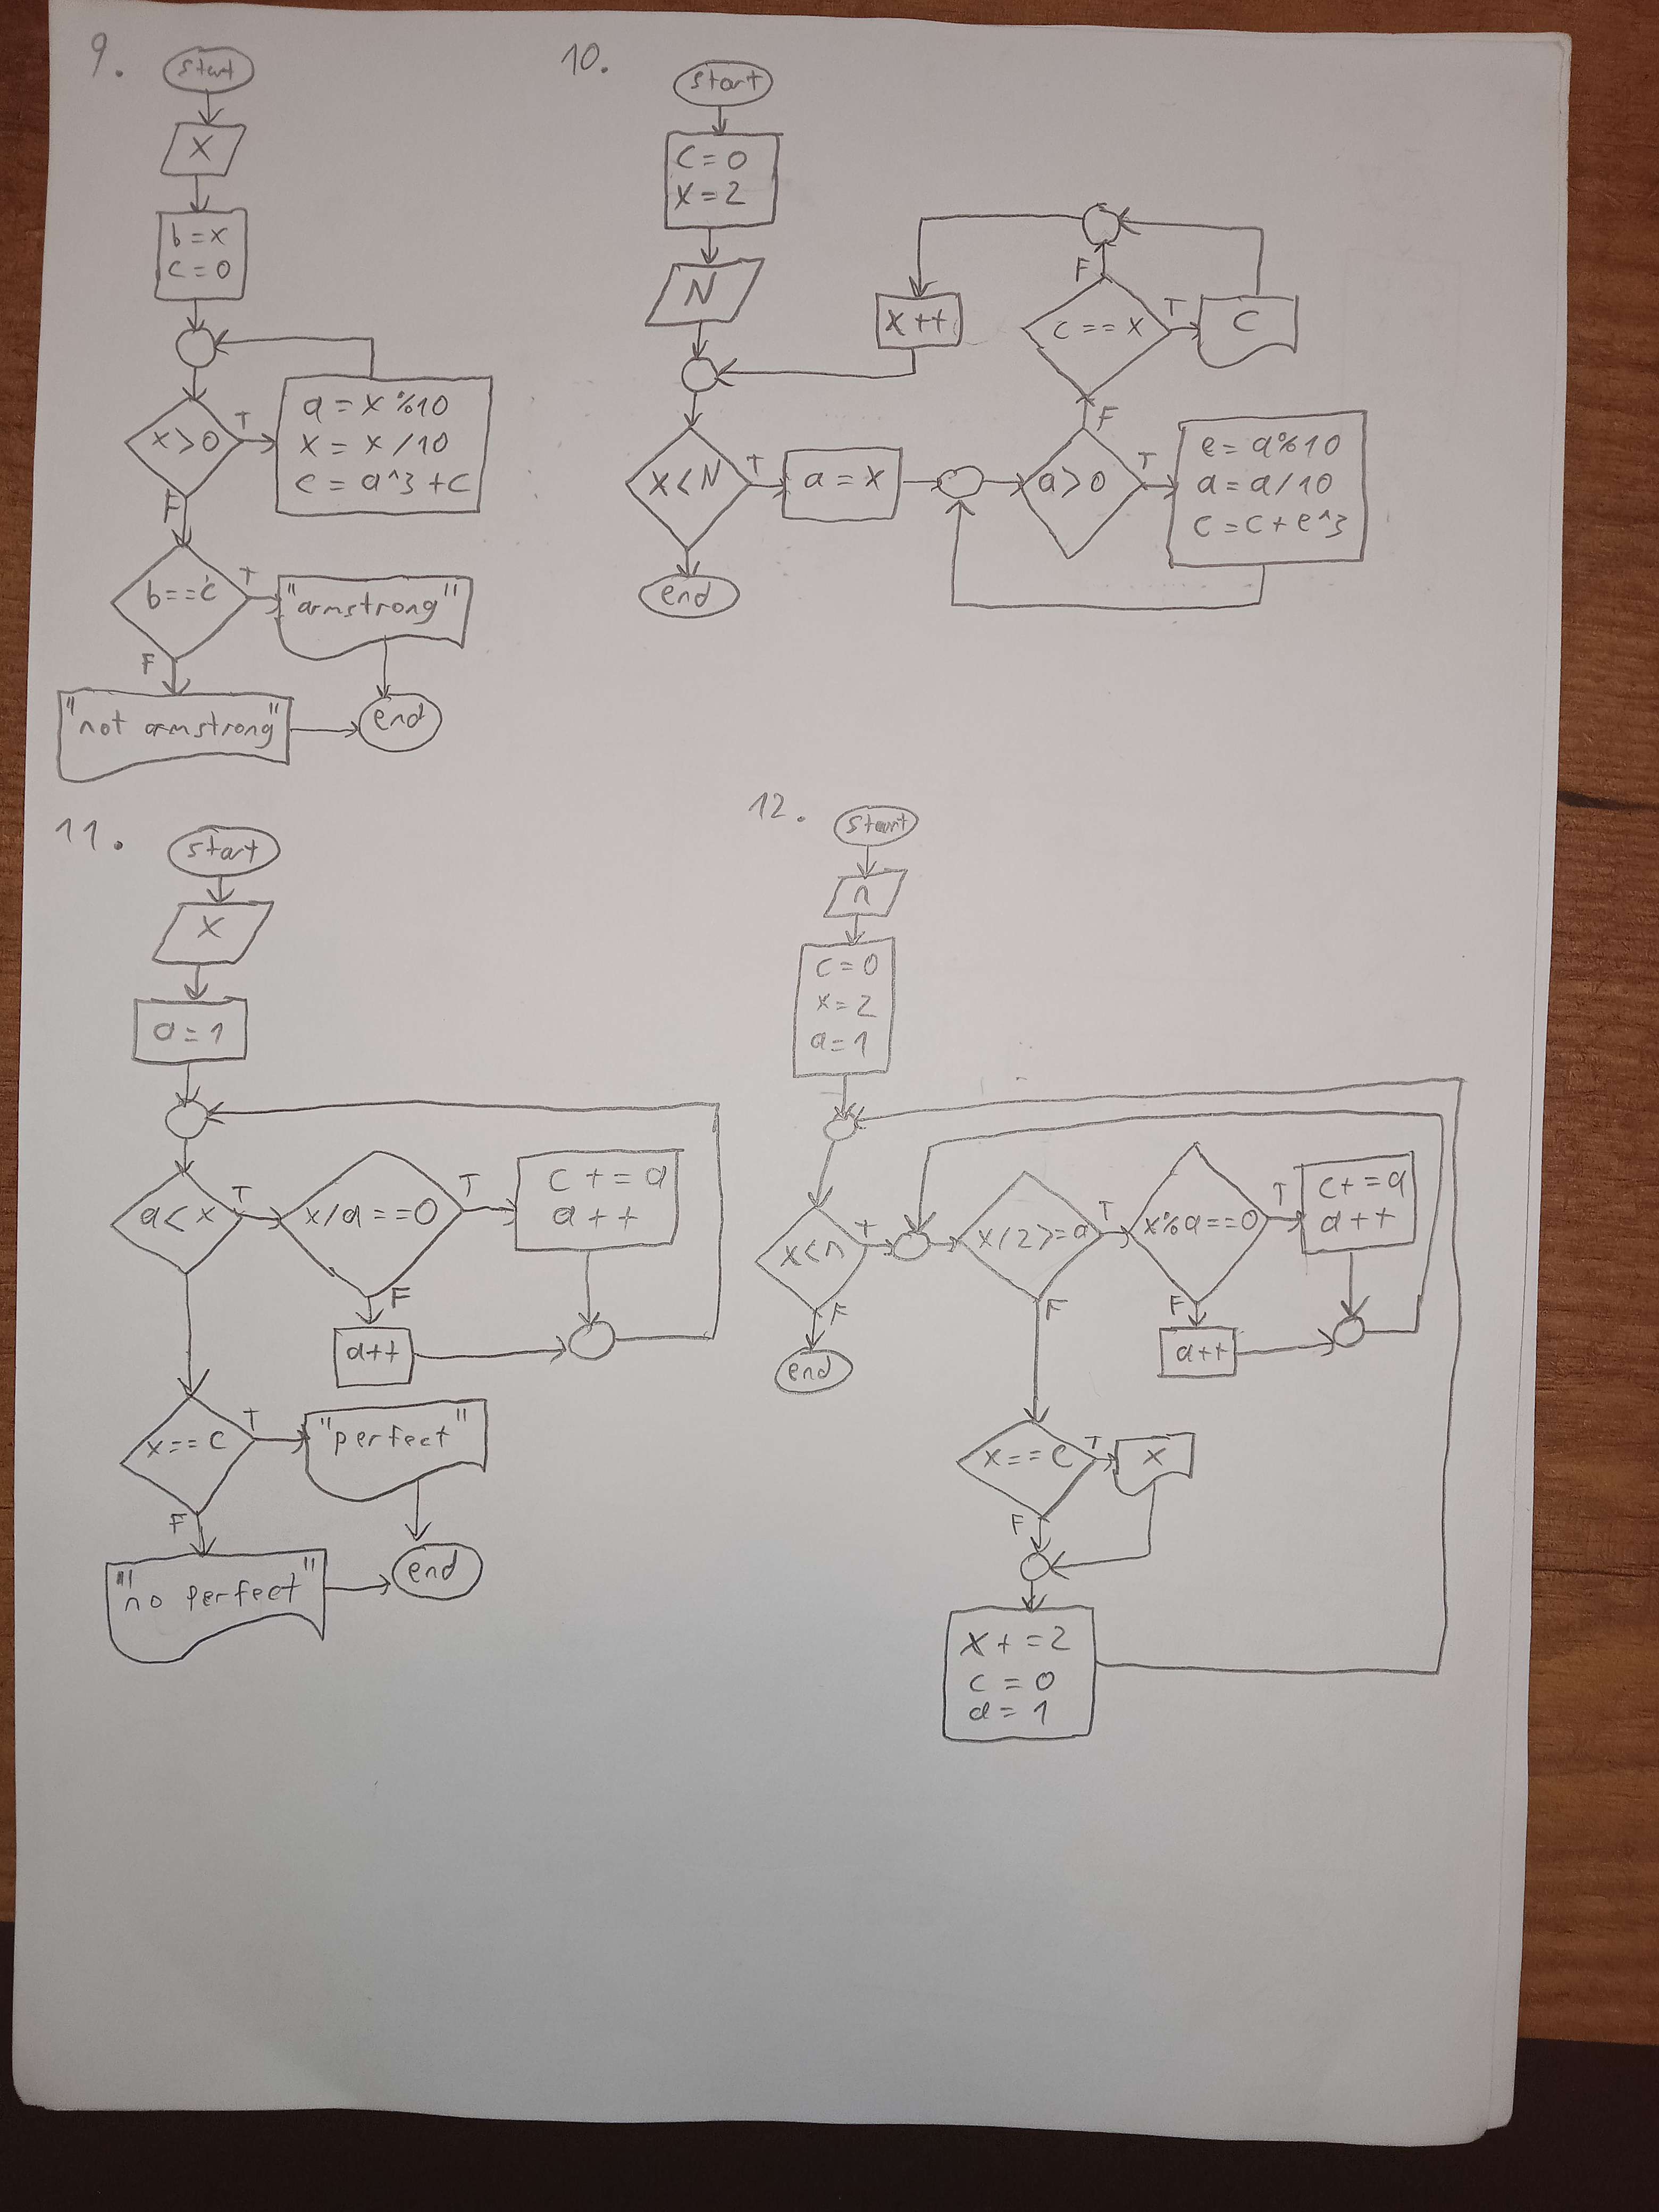 9.
start
X
b=x
c=0
x>0
T
a = x %10
x = x /10
c = a^3 +c
F
b==c
T
"armstrong"
F
"not armstrong"
end
10.
start
C=0
X=2
N
x<N
T
a = x
a>0
T
e = a%10
a = a/10
c = c + e^3
F
c == x
T
C
F
x++
end
11.
start
X
a=1
a<x
T
x/a==0
T
c += a
a++
F
a++
x==c
T
"perfect"
F
"no perfect"
end
12.
start
n
c=0
x=2
a=1
x<n
T
x/2>=a
T
x%a==0
T
c+=a
a++
F
a++
F
end
F
x==c
T
x
F
x+=2
c=0
a=1